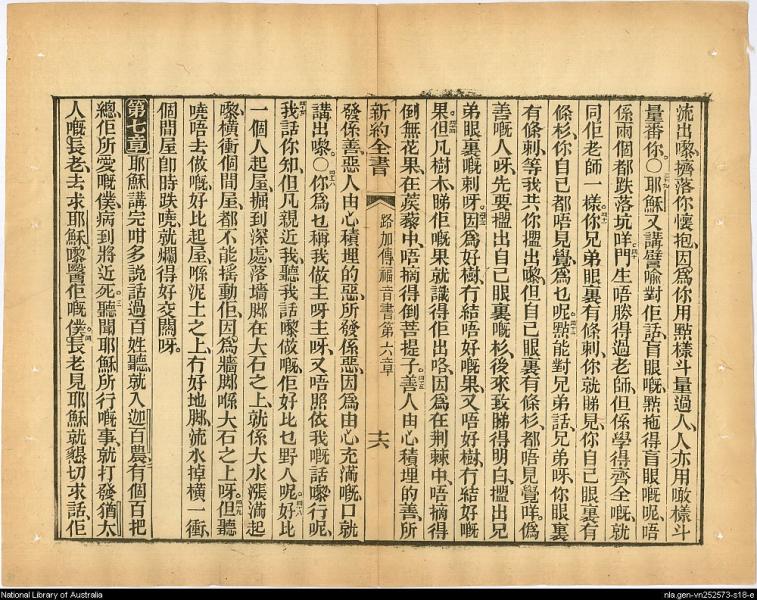 流出嚟、擠落你懷抱、因爲你用點樣斗量過人、人亦用噉樣斗
量番你〇耶穌又講譬喻對佢話、盲眼嘅點拖得盲眼嘅呢、唔
係兩個都跌落坑咩、門生唔勝得過老師、但係學得齊全嘅、就
同佢老師一樣、你兄弟眼裏有條刺、你就睇見、你自己眼裏有
條杉、你自己都唔見覺、爲乜呢、點能對兄弟話、兄弟呀、你眼裏
有條刺、等我共你搵出嚟、但自己眼裏有條杉、都唔見覺咩、僞
善嘅人呀、先要搵出自己眼裏嘅杉、後來致睇得明白、搵出兄
弟眼裏嘅刺呀、因爲好樹、冇結唔好嘅果、又唔好樹、冇結好嘅
果、但凡樹木、睇佢嘅果、就識得佢出咯、因爲在荆棘中、唔摘得
倒無花果、在蒺藜中、唔摘得倒菩提子、善人由心積埋的善、所
新約全書
路加傳福音書第六章
十六
發係善、惡人由心積埋的惡、所發係惡、因爲由心充滿嘅、口就
講出嚟〇你爲乜稱我做主呀主呀、又唔照依我嘅話嚟行呢、
我話你知、但凡親近我、聽我話嚟做嘅、佢好比乜野人呢、好比
一個人起屋、掘到深處、落墻脚在大石之上、就係大水漲滿起
嚟、橫衝個間屋、都不能搖動佢、因爲墻脚喺大石之上呀、但聽
嘵唔去做嘅、好比起屋喺泥土之上、冇好地脚、流水掉橫一衝、
個間屋卽時跌嘵、就爛得好交關呀。
第七章 耶穌講完咁多說話過百姓聽、就入迦百農、有個百把
總、佢所愛嘅僕、病到將近死、聽聞耶穌所行嘅事、就打發猶太
人嘅長老、去求耶穌、嚟醫佢嘅僕、長老見耶穌、就懇切求話、佢
National Library of Australia
nla.gen-vn252573-s18-e